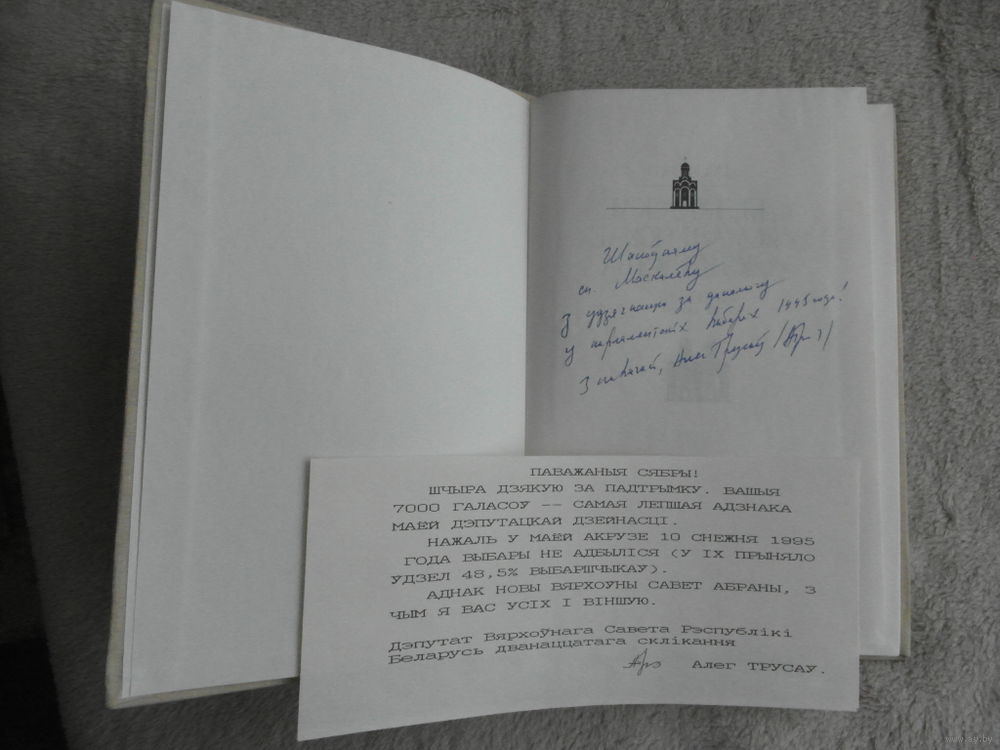 Шаноўнаму
сп. Маскалёву
З удзячнасцю за дапамогу
у парламенцкіх выбарах 1995 года!
З павагай, Алег Трусаў
ПАВАЖАНЫЯ СЯБРЫ!
ШЧЫРА ДЗЯКУЮ ЗА ПАДТРЫМКУ. ВАШЫЯ
7000 ГАЛАСОУ -- САМАЯ ЛЕПШАЯ АДЗНАКА
МАЕЙ ДЭПУТАЦКАЙ ДЗЕЙНАСЦІ.
НАЖАЛЬ У МАЕЙ АКРУЗЕ 10 СНЕЖНЯ 1995
ГОДА ВЫБАРЫ НЕ АДБЫЛІСЯ (У ІХ ПРЫНЯЛО
УДЗЕЛ 48,5% ВЫБАРШЧЫКАУ).
АДНАК НОВЫ ВЯРХОУНЫ САВЕТ АБРАНЫ, З
ЧЫМ Я ВАС УСІХ І ВІНШУЮ.
Дэпутат Вярхоўнага Савета Рэспублікі
Беларусь дванаццатага склікання
Алег ТРУСАУ.
www.ay.by